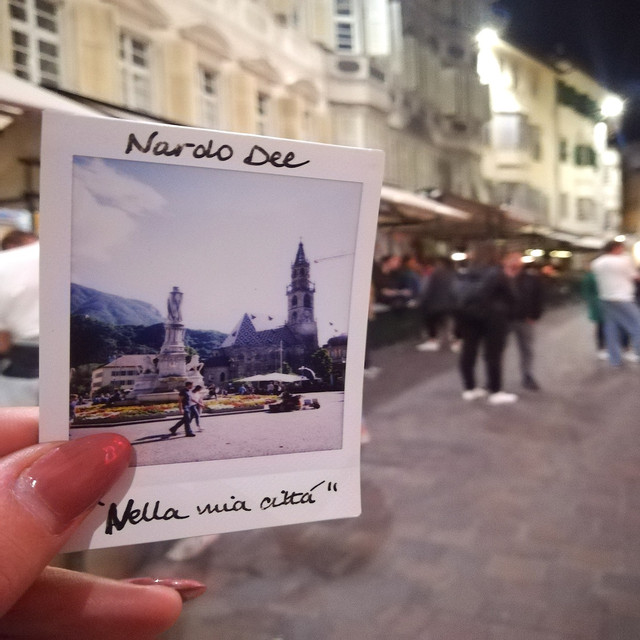 Nardo Dee
"Nella mia cittá"